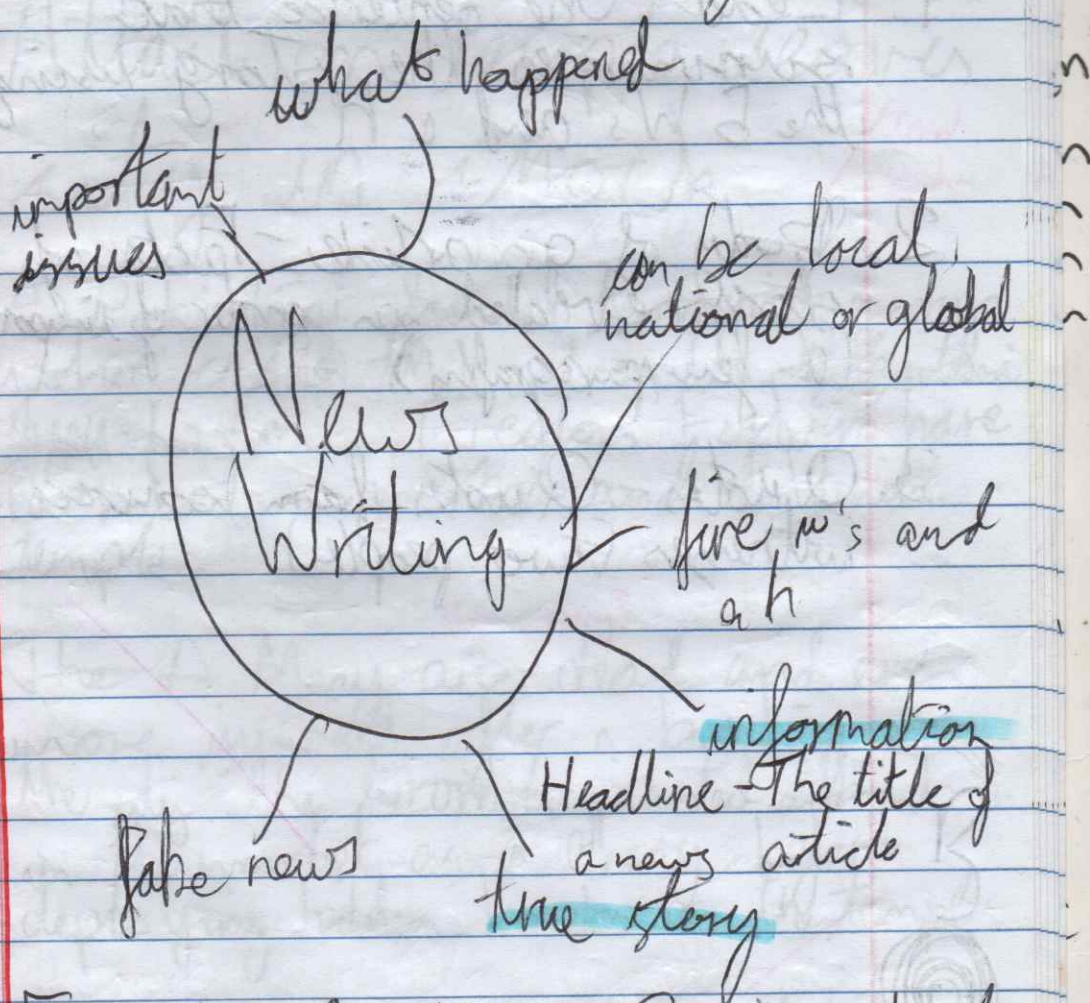 what happened
important
issues
can be local,
national or global
News
Writing
five w's and
a h
information
Headline - The title of
a news article
fake news
true story